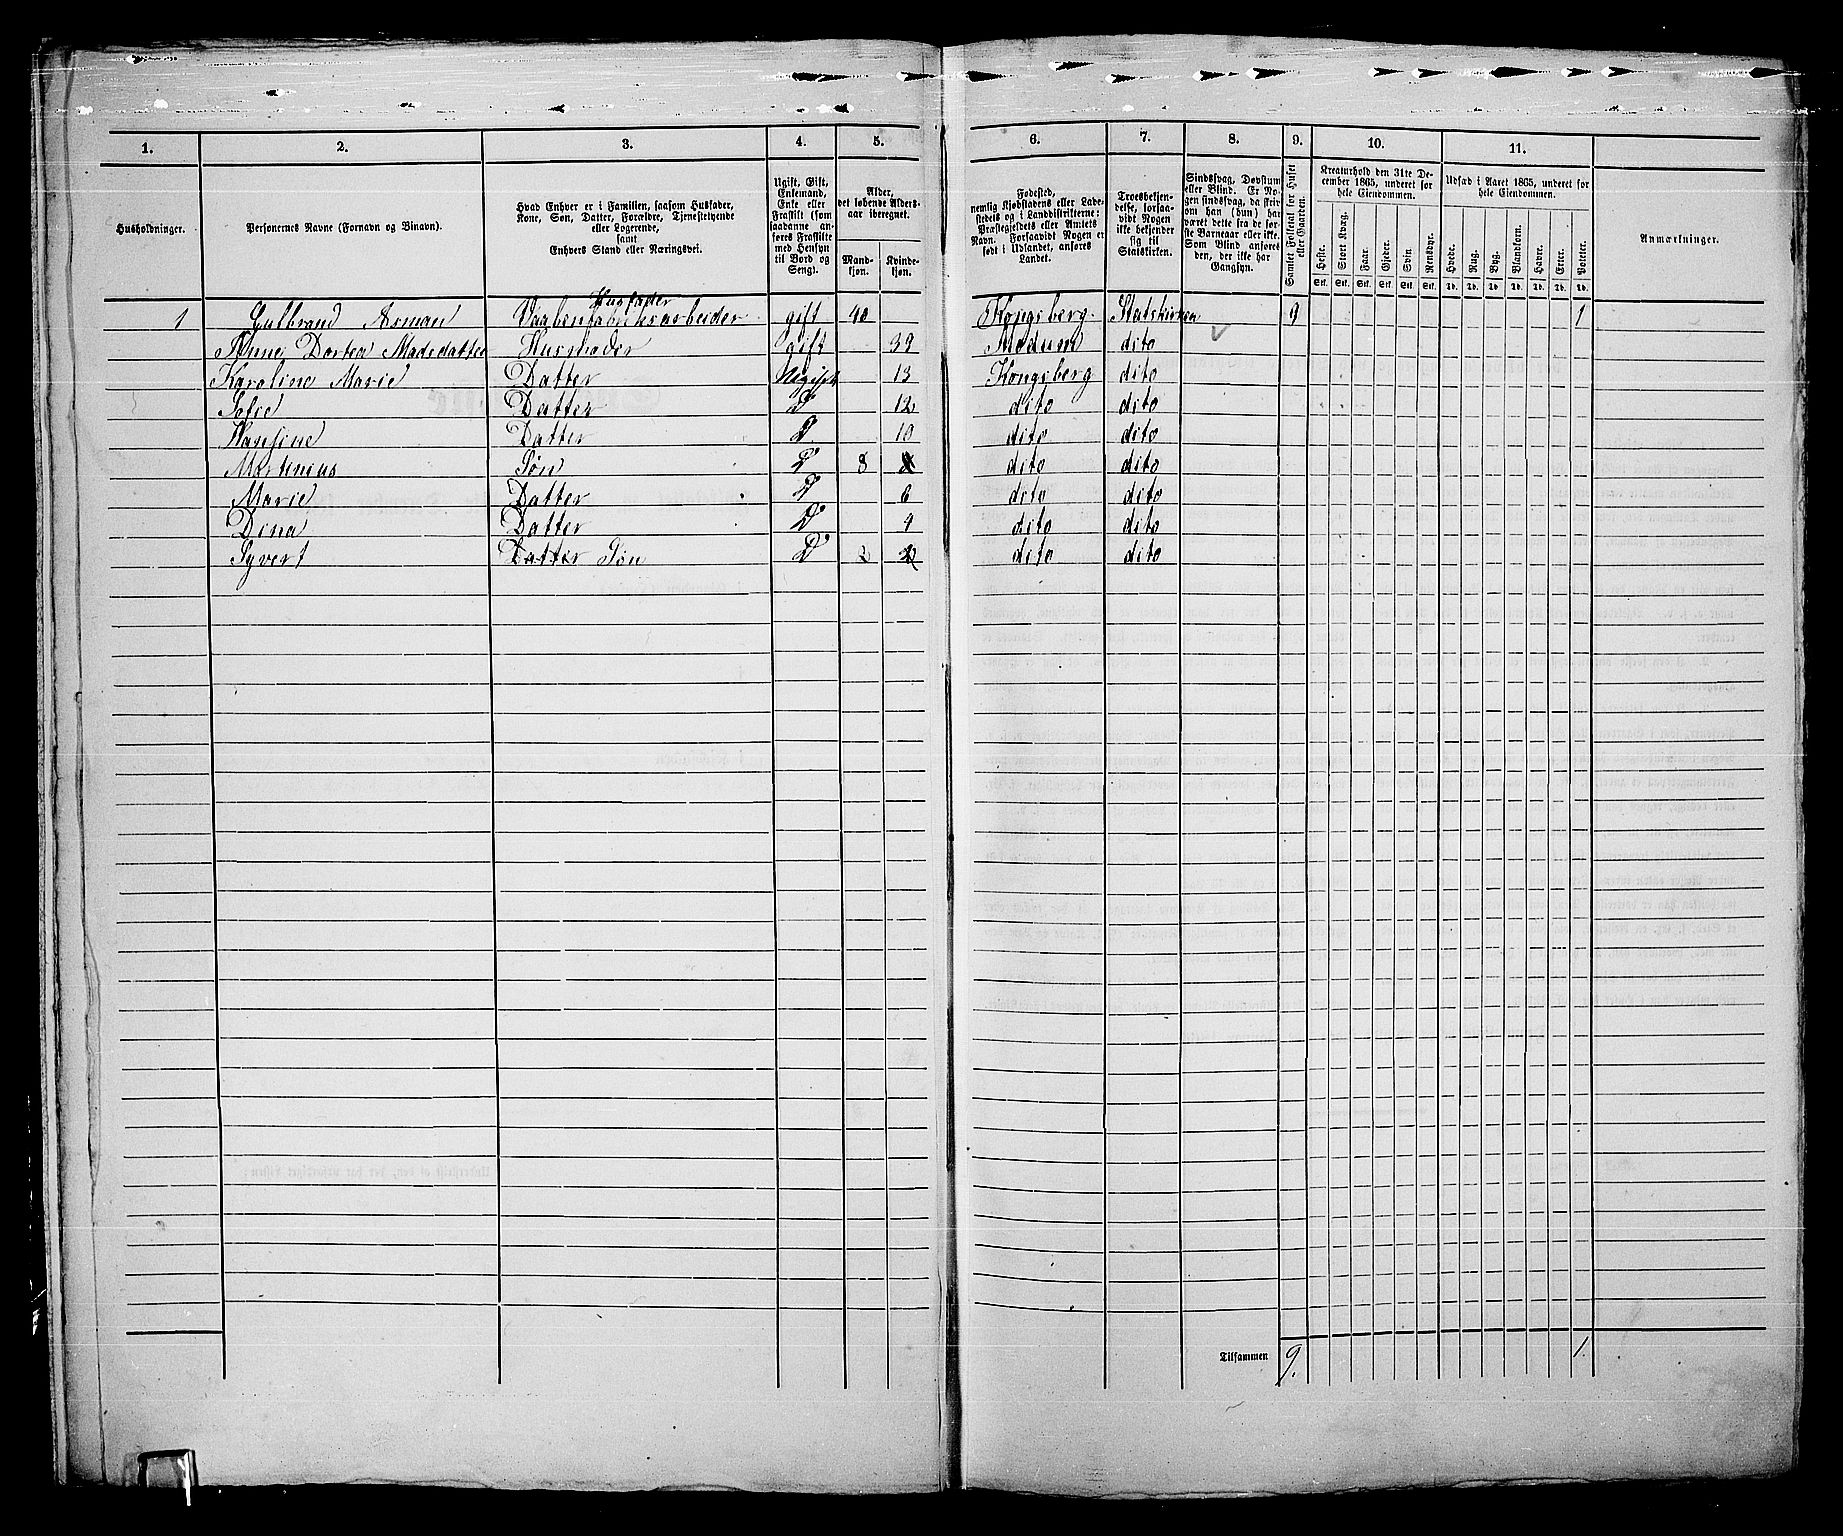 1. 2. 3. 4. 5. 6. 7. 8. 9. 10. 11.
Husholdninger.
Personernes Navne (Fornavn og Binavn).
Hvad Enhver er i Familien, saasom Husfader,
Kone, Søn, Datter, Forældre, Tjenestetyende
eller Logerende,
samt
Enhvers Stand eller Næringsvei.
Ugift, Gift,
Enkemand,
Enke eller
Fraskilt (som
saadanne an-
føres Fraskilte
med Hensyn
til Bord og
Seng).
Alder,
det løbende Alders-
aar iberegnet.
Mand-
kjøn.
Kvinde-
kjøn.
Fødested,
nemlig Kjøbstadens eller Lade-
stedets og i Landdistrikterne:
Præstegjeldets eller Amtets
Navn. Forsaavidt Nogen er
født i Udlandet, anføres
Landet.
Troesbekjen-
delse, forsaa-
vidt Nogen
ikke bekjender
sig til
Statskirken.
Sindssvag, Døvstum
eller Blind. Er No-
gen sindssvag, da skriv
om han (hun) har
været dette fra de før-
ste Barneaar eller ikke.
Som Blind anføres
den, der ikke har
Gangsyn.
Samlet Folketal for Huset
eller Gaarden.
Kreaturhold den 31te De-
cember 1865, underet før
hele Eiendommen.
Heste. Stort Kvæg. Faar. Gjeder. Svin. Rensdyr.
Stk. Stk. Stk. Stk. Stk. Stk.
Udsæd i Aaret 1865, underet før
hele Eiendommen.
Hvede. Rug. Byg. Blandkorn. Havre. Erter. Poteter.
Td. Td. Td. Td. Td. Td. Td.
Anmærkninger.
Husfader
1 Gulbrand Asman gift 40 Kongsberg Statskirken 9 1
Anne Dortea Madsdatter Husmoder gift 39 Modum dito
Karoline Marie Datter Ugift 13 Kongsberg dito
Sofie Datter D 12 dito dito
Hansine Datter D 10 dito dito
Martinius Søn D 8 dito dito
Marie Datter D 6 dito dito
Dina Datter D 4 dito dito
Syvert Datter Søn D 2 2 dito dito
Tilsammen 9. 1.